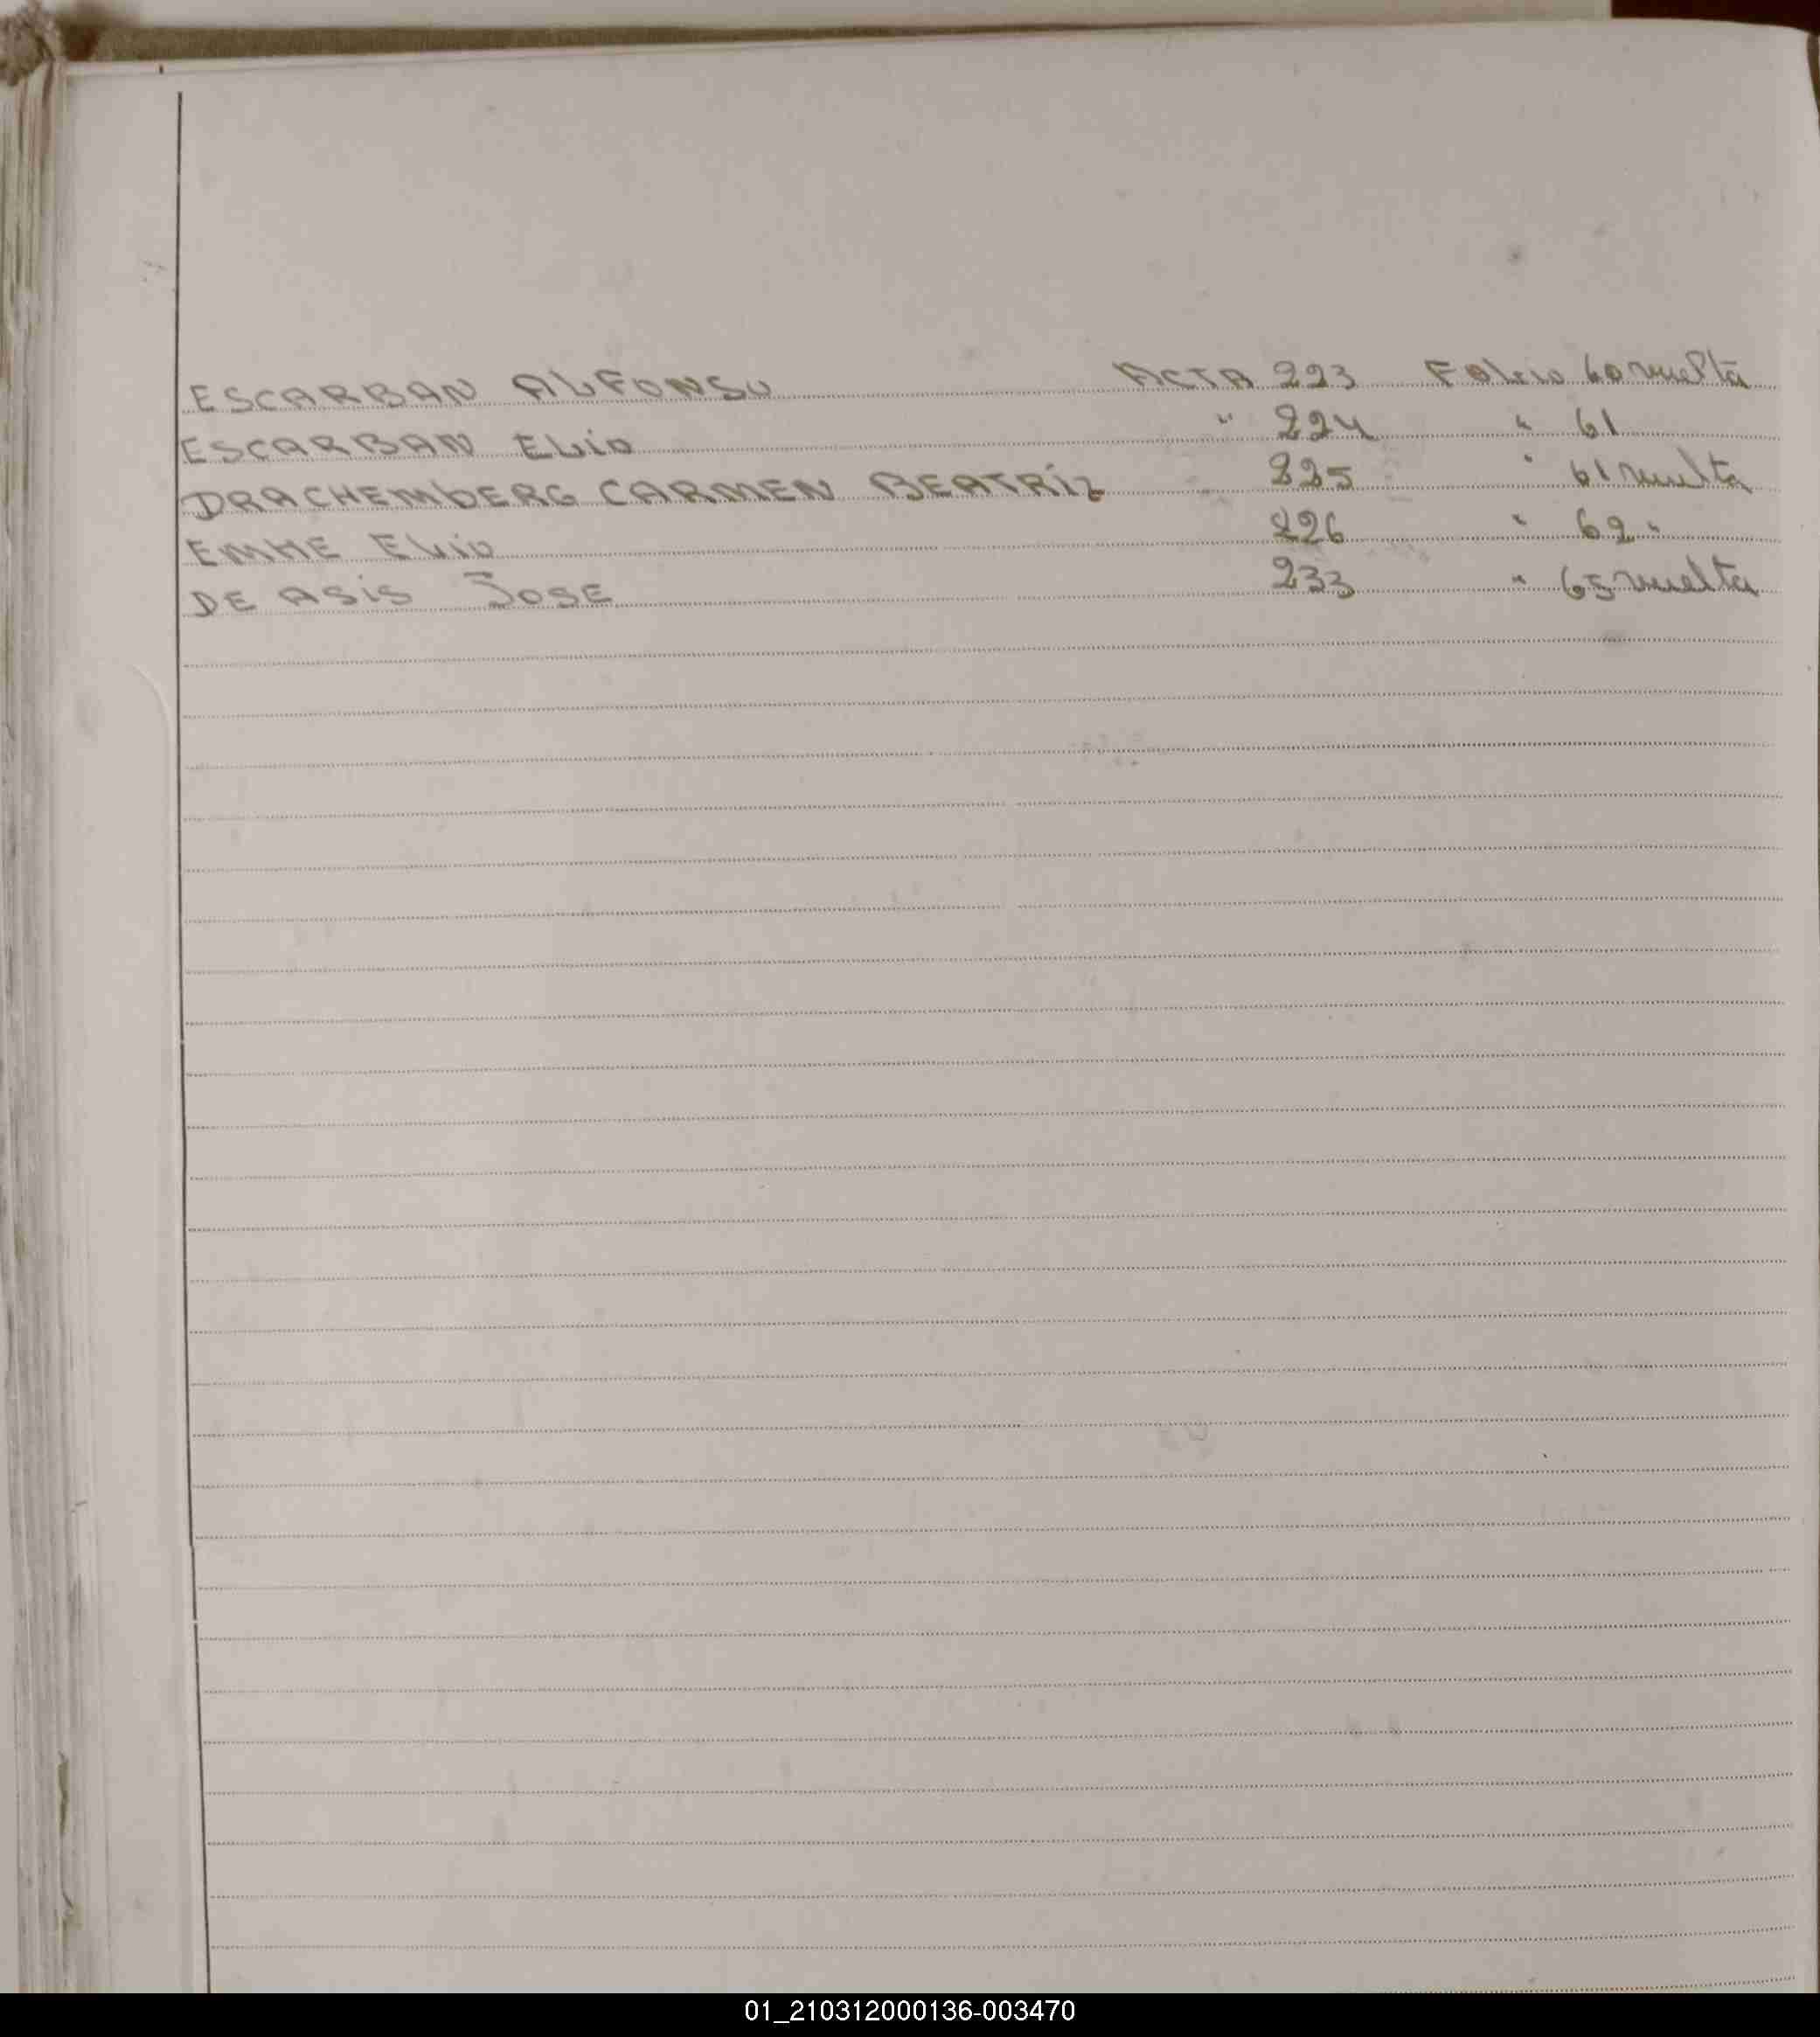 ESCARBAN ALFONSO ACTA 223 Folcio 60 vuelta
ESCARBAN ELiO " 224 " 61
DRACHEMbERG CARMEN BEATRiZ 225 " 61 vuelta
EMHE ELiO 226 " 62 "
DE ASiS JOSE 233 " 65 vuelta
01_210312000136-003470